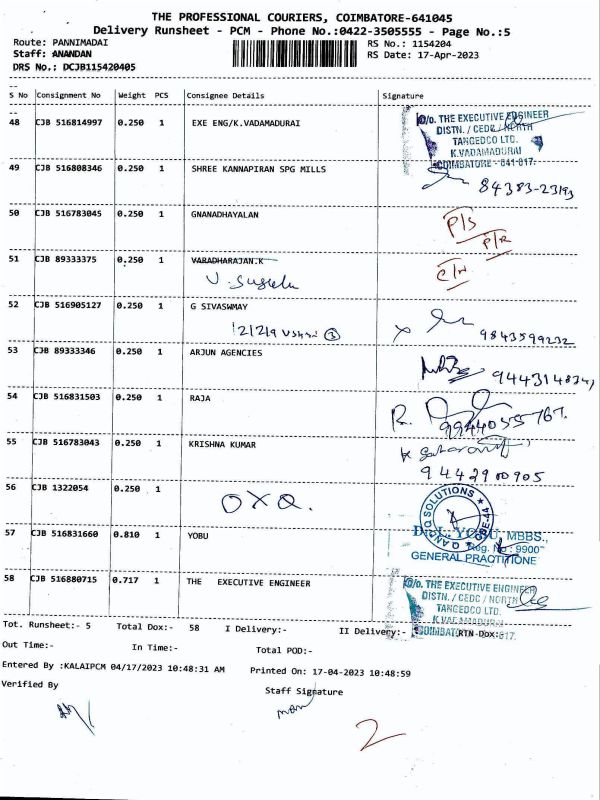 THE PROFESSIONAL COURIERS, COIMBATORE-641045
Delivery Runsheet - PCM - Phone No.:0422-3505555 - Page No.:5
Route: PANNIMADAI RS No.: 1154204
Staff: ANANDAN RS Date: 17-Apr-2023
DRS No.: DCJB115420405
S No Consignment No Weight PCS Consignee Details Signature
48 CJB 516814997 0.250 1 EXE ENG/K.VADAMADURAI
O/o. THE EXECUTIVE ENGINEER
DISTN. / CEDC / NORTH
TANGEDCO LTD.
K.VADAMADURAI
COIMBATORE - 641-017.
49 CJB 516808346 0.250 1 SHREE KANNAPIRAN SPG MILLS
84383-23193
50 CJB 516783045 0.250 1 GNANADHAYALAN P/S
P/R
51 CJB 89333375 0.250 1 VARADHARAJAN.K
52 CJB 516905127 0.250 1 G SIVASWMAY
9843599232
53 CJB 89333346 0.250 1 ARJUN AGENCIES
54 CJB 516831503 0.250 1 RAJA
55 CJB 516783043 0.250 1 KRISHNA KUMAR
9442900905
56 CJB 1322054 0.250 1
OXQ.
Q AND Q SOLUTIONS
57 CJB 516831660 0.810 1 YOBU
YOBU, MBBS.,
Reg. No : 9900
GENERAL PRACTITIONE
58 CJB 516880715 0.717 1 THE EXECUTIVE ENGINEER
O/o. THE EXECUTIVE ENGINEER
DISTN. / CEDC / NORTH
TANGEDCO LTD.
K.VADAMADURAI
Tot. Runsheet:- 5 Total Dox:- 58 I Delivery:- II Delivery:- RTN Dox:
Out Time:- In Time:- Total POD:-
Entered By :KALAIPCM 04/17/2023 10:48:31 AM Printed On: 17-04-2023 10:48:59
Verified By Staff Signature
2